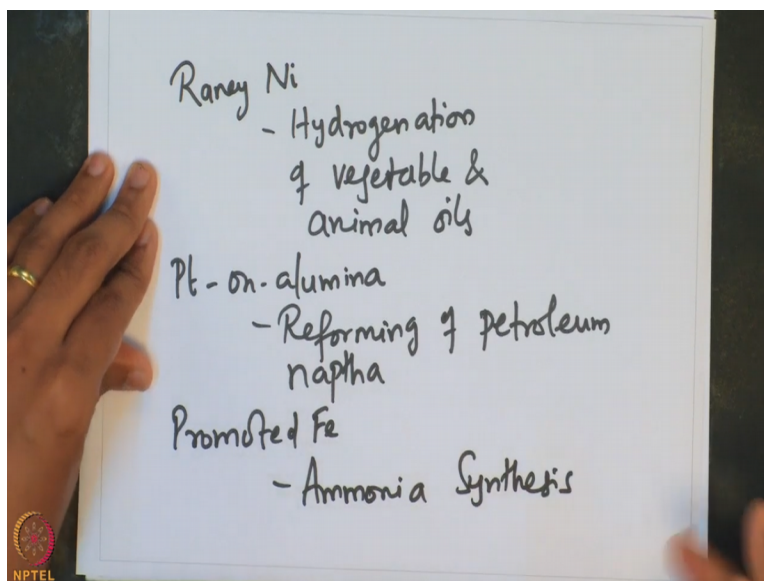 Raney Ni
- Hydrogenation
of vegetable &
animal oils
Pt-on-alumina
- Reforming of petroleum
naptha
Promoted Fe
- Ammonia Synthesis
NPTEL